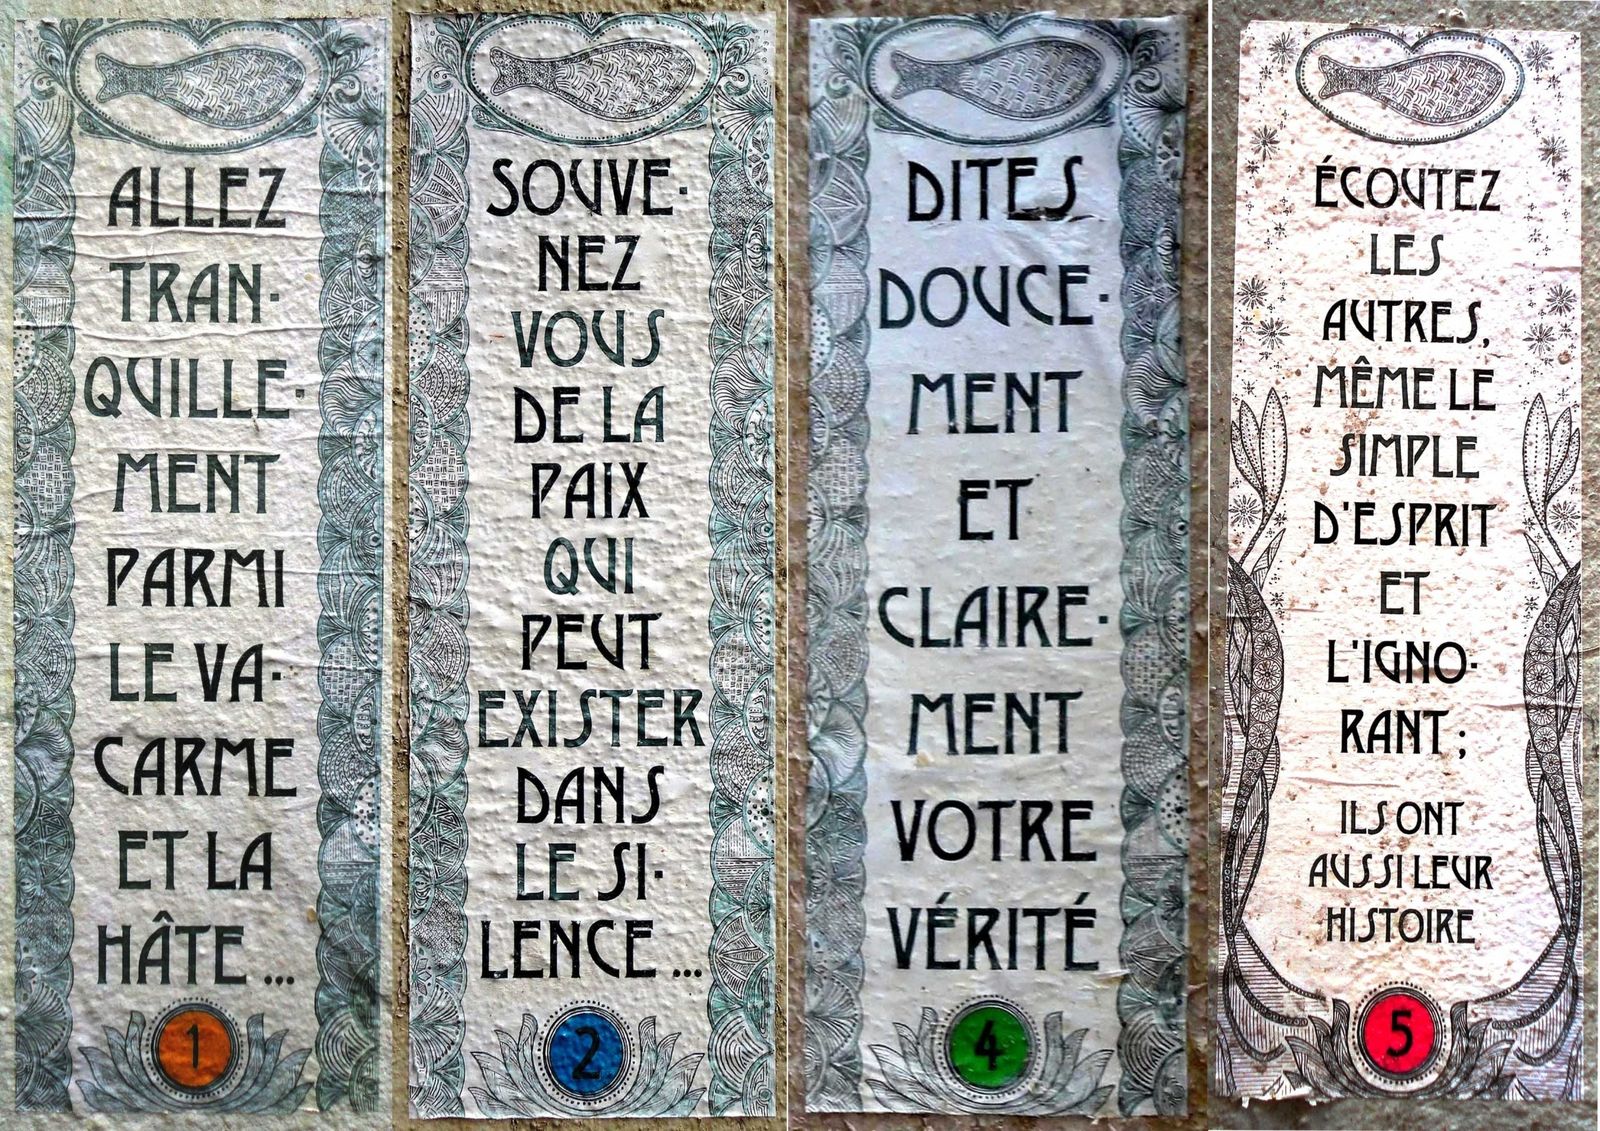 ALLEZ
TRAN·
QUILLE·
MENT
PARMI
LE VA·
CARME
ET LA
HÂTE ...
1
SOUVE·
NEZ
VOUS
DE LA
PAIX
QUI
PEUT
EXISTER
DANS
LE SI·
LENCE ...
2
DITES
DOUCE·
MENT
ET
CLAIRE·
MENT
VOTRE
VÉRITÉ
4
ÉCOUTEZ
LES
AUTRES,
MÊME LE
SIMPLE
D'ESPRIT
ET
L'IGNO·
RANT ;
ILS ONT
AUSSI LEUR
HISTOIRE
5